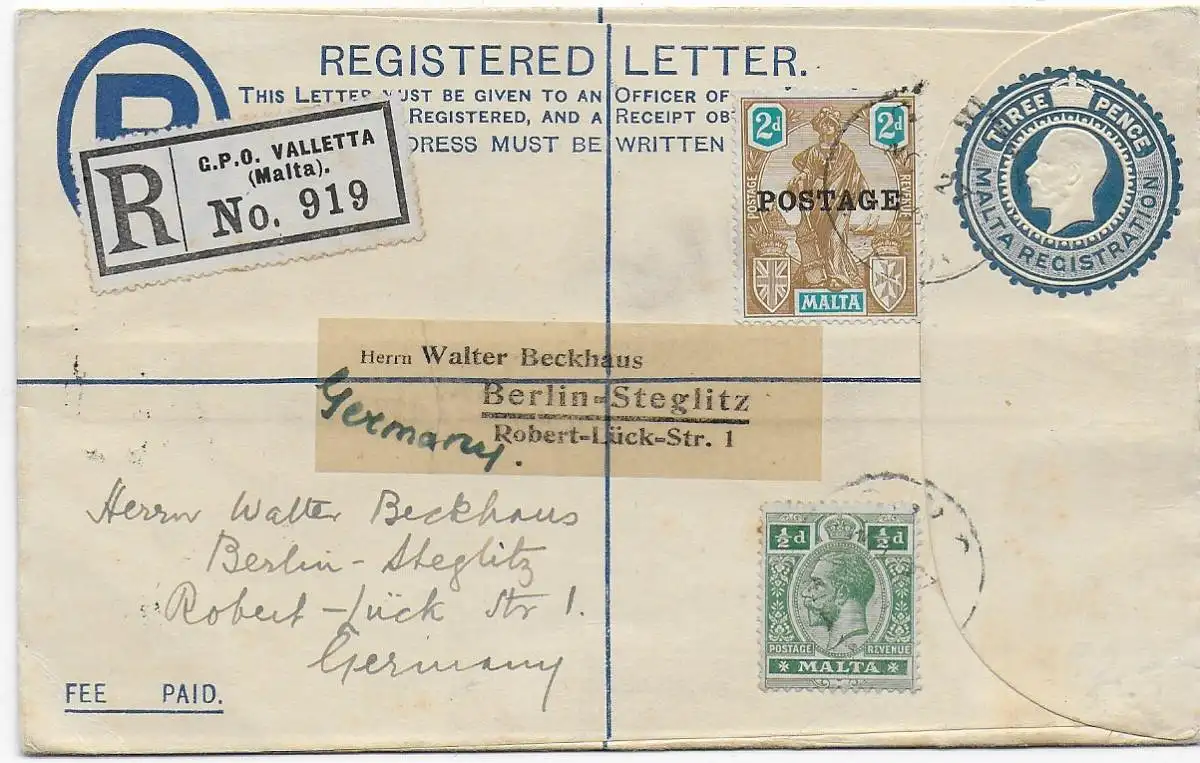 REGISTERED LETTER.
THIS LETTER MUST BE GIVEN TO AN OFFICER OF
REGISTERED, AND A RECEIPT OBT
DRESS MUST BE WRITTEN
R
R
G.P.O. VALLETTA
(Malta).
No. 919
2d 2d
POSTAGE REVENUE
POSTAGE
MALTA
THREE PENCE
MALTA REGISTRATION
Herrn Walter Beckhaus
Berlin-Steglitz
Robert-Lück-Str. 1
Germany.
Herrn Walter Beckhaus
Berlin-Steglitz
Robert-Lück Str 1.
Germany
½d ½d
POSTAGE REVENUE
MALTA
FEE PAID.